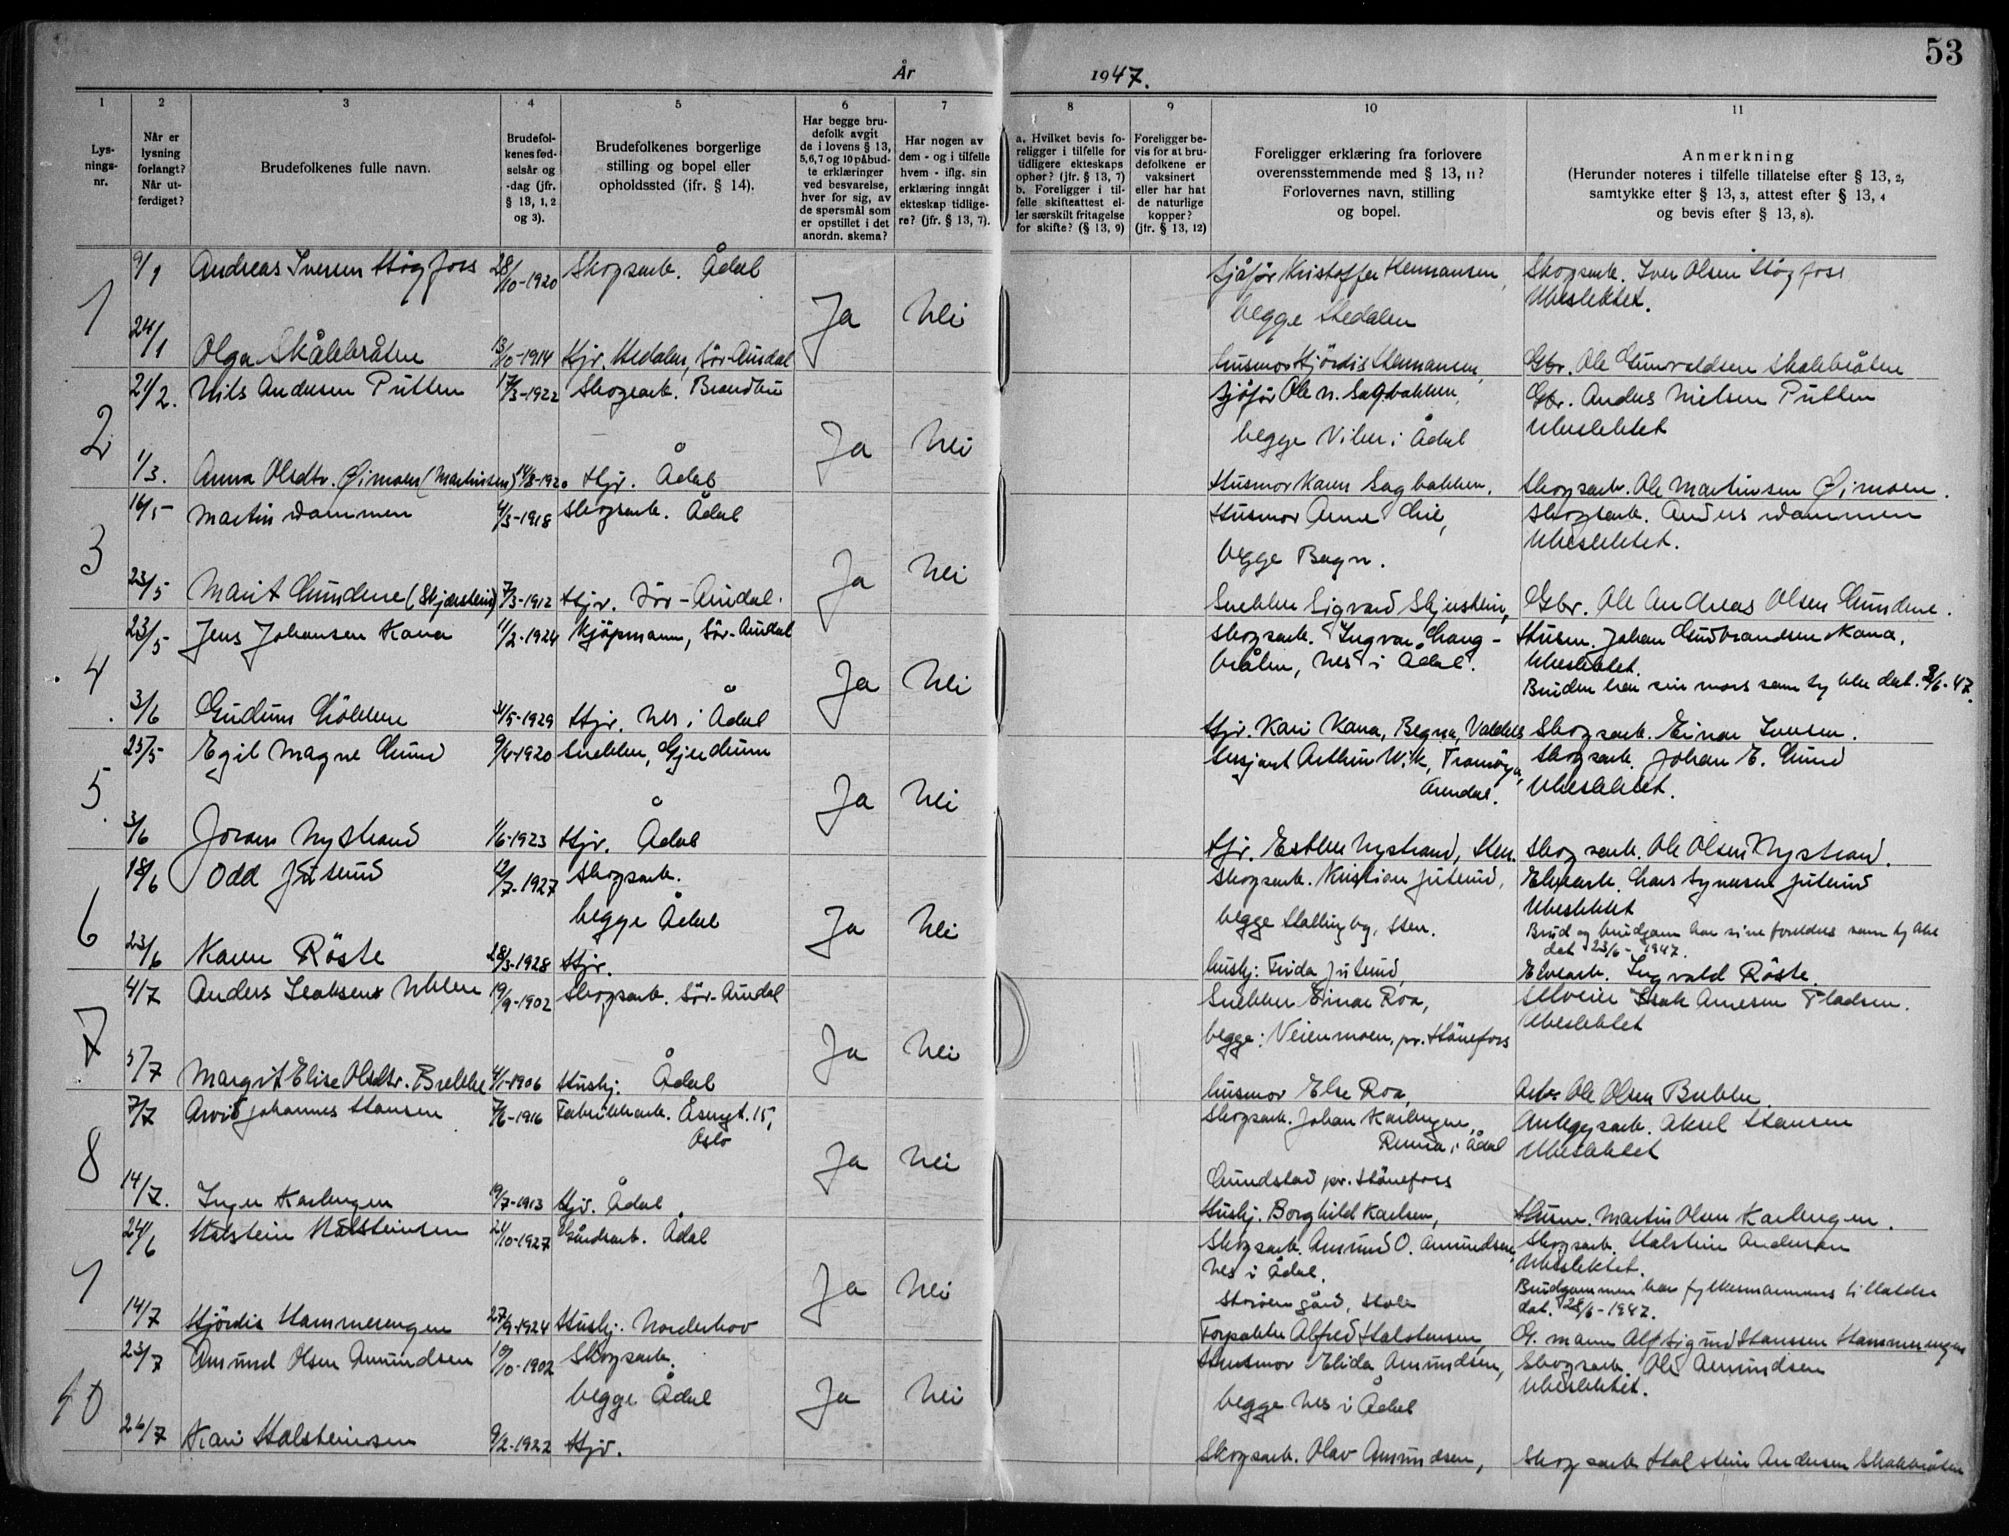 53
År 1947.
1 2 3 4 5 6 7 8 9 10 11
Lys-
nings-
nr.
Når er
lysning
forlangt?
Når ut-
ferdiget?
Brudefolkenes fulle navn.
Brudefol-
kenes fød-
selsår og
-dag (jfr.
§ 13, 1, 2
og 3).
Brudefolkenes borgerlige
stilling og bopel eller
opholdssted (ifr. § 14).
Har begge bru-
defolk avgit
de i lovens § 13,
5,6,7 og 10 påbud-
te erklæringer
ved besvarelse,
hver for sig, av
de spørsmål som
er opstillet i det
anordn. skema?
Har nogen av
dem - og i tilfelle
hvem - iflg. sin
erklæring inngåt
ekteskap tidlige-
re? (jfr. § 13, 7).
a. Hvilket bevis fo-
religger i tilfelle for
tidligere ekteskaps
ophør? (jfr. § 13, 7)
b. Foreligger i til-
felle skifteattest el-
ler særskilt fritagelse
for skifte? (§ 13, 9)
Foreligger be-
vis for at bru-
defolkene er
vaksinert
eller har hat
de naturlige
kopper?
(jfr. § 13, 12)
Foreligger erklæring fra forlovere
overensstemmende med § 13, 11?
Forlovernes navn, stilling
og bopel.
Anmerkning
(Herunder noteres i tilfelle tillatelse efter § 13, 2,
samtykke efter § 13, 3, attest efter § 13, 4
og bevis efter § 13, 8).
1 9/1 Andreas Iversen Høgfoss 28/10-1920 Skogsarb. Ådal Ja Nei Sjåfør Kristoffer Hermansen, Skogsarb. Iver Olsen Høgfoss
begge Hedalen Ubeslektet.
24/1 Olga Skålebråten 13/10-1914 Hjv. Hedalen, Sør-Aurdal husmor Hjørdis Hermansen, Gbr. Ole Gunvaldsen Skalebråten
2 21/2. Nils Andersen Putten 17/3-1922 Skogsarb. Brandbu Ja Nei Sjåfør Ole N. Sagbakken, Gbr. Anders Nielsen Putten
begge Viker i Ådal Ubeslektet
1/3. Anna Olsdtr. Øimoen (Martinsen) 14/8-1920 Hjv. Ådal Husmor Karen Sagbakken. Skogsarb. Ole Martinsen Øimoen.
3 16/5 Martin Dammen 4/3-1918 Skogsarb. Ådal Ja Nei Husmor Anne Lie, Skogsarb. Anders Dammen
begge Bagn. Ubeslektet.
23/5 Marit Lundene (Skjerstein) 7/3-1912 Hjv. Sør-Aurdal. Snekker Sigvard Skjerstein, Gbr. Ole Andreas Olsen Lundene.
4 23/5 Jens Johansen Kana 11/2-1924 Kjøpmann, Sør-Aurdal Ja Nei Skogsarb. Ingvar Haug- Husm. Johan Gudbrandsen Kana.
bråten, Nes i Ådal. Ubeslektet.
Bruden har sin mors samtykke dat. 3/6-47.
3/6 Gudrun Løkken 31/5-1929 Hjv. Nes i Ådal Hjv. Kari Kana, Begna, Valdres Skogsarb. Einar Iversen.
5 23/5 Egil Magne Lund 9/4-1920 Snekker, Gjerdrum Ja Nei Sersjant Arthur Wik, Tromøya, Skogsarb. Johan E. Lund
Arendal. Ubeslektet.
3/6 Jorun Nystrand 1/6-1923 Hjv. Ådal Hjv. Esther Nystrand, Hen. Skogsarb. Ole Olsen Nystrand.
6 18/6 Odd Juterud 12/7-1927 Skogsarb. Ja Nei Skogsarb. Kristian Juterud, Elvearb. Lars Syversen Juterud
begge Ådal begge Hallingby, Hen. Ubeslektet
Brud og brudgom har sine foreldres samtykke
dat 23/6-1947.
23/6 Karen Røste 28/3-1928 Hjv. hushj: Frida Juterud, Elvearb. Ingvald Røste.
7 4/7 Anders Isaksen Uhlen 19/9-1902 Skogsarb. Sør-Aurdal Ja Nei Snekker Einar Roa, Selveier Isak Arnesen Pladsen.
begge: Veienmoen, pr. Hønefoss Ubeslektet
5/7 Margit Elise Olsdtr. Brekke 4/1-1906 Hushj. Ådal husmor Else Roa, Arb. Ole Olsen Brekke.
8 7/7 Arvid Johannes Hansen 7/6-1916 Fabrikkarb. Åsengt. 15, Ja Nei Skogsarb. Johan Karlengen, Anleggsarb. Aksel Hansen
Oslo Ringa i Ådal Ubeslektet
Lundstad pr. Hønefoss
14/7. Inger Karlengen 19/7-1913 Hjv. Ådal Hushj. Borghild Karlsen, Husm. Martin Olsen Karlengen.
9 24/6 Halstein Halsteinsen 24/10-1927 Gårdsarb. Ådal Ja Nei Skogsarb. Amund O. Amundsen, Skogsarb. Halstein Andersen
Nes i Ådal. Ubeslektet.
gård, Hole Brudgommen har fylkesmannens tillatelse
dat. 28/6-1947.
14/7 Hjørdis Hammerengen 27/9-1924 Hushj. Norderhov Forpakter Alfred Halstensen, G. mann Alf Sigurd Hanssen Hammerengen
10 23/7 Amund Olsen Amundsen 10/10-1902 Skogsarb. Ja Nei Husmor Elida Amundsen, Skogsarb. Ole Amundsen
begge Ådal begge Nes i Ådal Ubeslektet.
26/7 Kari Halsteinsen 9/2-1922 Hjv. Skogsarb. Olav Amundsen, Skogsarb Halstein Andersen Skalebråten